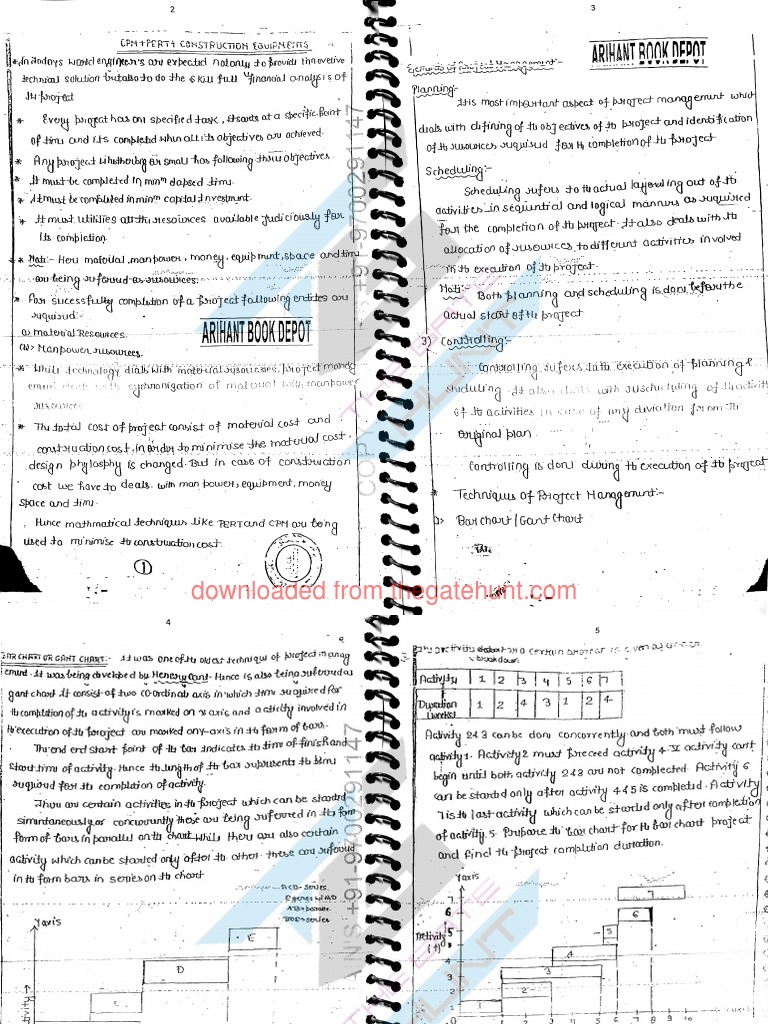 2
CPM+PERT+ CONSTRUCTION EQUIPMENTS
* In todays world engineer's are expected not only to provide innovative
technical solution but also to do the skill full financial analysis of
th project
* Every project has one specified task, it starts at a specific point
of time and its completed when all its objectives are achieved.
* Any project whether big or small has following three objectives
* It must be completed in minm elapsed time.
* it must be completed in minm capital investment.
* It must utilities all the resources available judiciously for
its completion
* Note:- Here material, manpower, money, equipment, space and time
are being referred as resources.
* For sucessfully completion of a project following entites are
required:-
a) material Resources.
(b) Manpower resources.
ARIHANT BOOK DEPOT
* While technology deals with material resources, project manag
ement deals with sychronization of material with manpower
resources
* The total cost of project consist of material cost and
construction cost. in order to minimise the material cost
design phylosphy is changed. But in case of construction
cost we have to deals with man power, equipment, money
space and time.
Hence mathmatical techniques like PERT and CPM are being
used to minimise th construction cost
1
3
ARIHANT BOOK DEPOT
Planning:-
It is most important aspect of project management which
deals with defining of th objectives of th project and identification
of th resources required for th completion of th project
Scheduling:-
Scheduling refers to th actual layering out of th
activities in sequential and logical manner as required
for the completion of th project. It also deals with th
allocation of resources, to different activities involved
in th execution of th project
Note:- Both planning and scheduling is done before the
actual start of th project
3) Controlling:-
Controlling refers to th execution of planning &
sheduling. It also deals with rescheduling of th activit
of th activities in case of any diviation from th
original plan
Controlling is done during th execution of th project
* Techniques of Project Management:-
Bar chart / Gant Chart
downloaded from thegatehunt.com
+91-9700291147
4
BAR CHART OR GANT CHART:- It was one of th oldest technique of project manag
ement. It was being developed by Henery Gant. Hence is also being referred as
gant chart. It consist of two co ordinate axis in which time required for
th completion of th activity is marked on x axis and activity involved in
th execution of th project are marked on y-axis in th form of bars.
The end end start point of th bar indicates th time of finish and
start time of activity. Hence th length of th bar represents th time
required for th completion of activity.
There are certain activities in th project which can be started
simultaneously or concurrently these are being referred in th form
form of bars in parallel on th chart while there are also certain
activity which can be started only after th other. these are referred
in th form bars in series on th chart
Y axis
E
D
C
+91-9700291147
5
Activity 1 2 3 4 5 6 7
Duration (weeks) 1 2 4 3 1 2 4
Activity 2 & 3 can be done concurrently and both must follow
activity 1. Activity 2 must preceed activity 4. activity cant
begin until both activity 2 & 3 are not complected. Activity 6
can be started only after activity 4 & 5 is completed. Activity
7 is th last activity which can be started only after completion
of activity 5. Prepare th bar chart for th bar chart project
and find th project completion duration.
Y axis
Activity
7
6
5
4
3
2
1
7
6
5
4
3
2
1